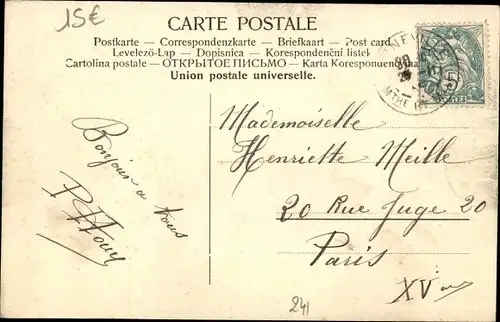 15€
CARTE POSTALE
Postkarte — Correspondenzkarte — Briefkaart — Post card
Levelező-Lap — Dopisnica — Korespondenční listek
Cartolina postale — ОТКРЫТОЕ ПИСЬМО — Karta Korespondencyjna
Union postale universelle.
NEVILLE
MTHE ET M
Mademoiselle
Henriette Meille
20 Rue Juge 20
Paris
XV
Bonjour a
vous
241